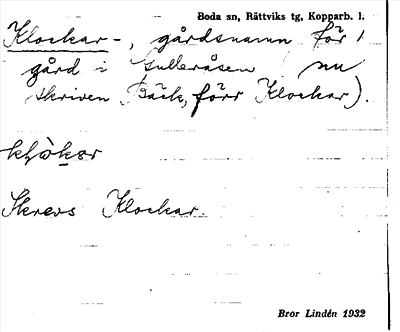 Boda sn, Rättviks tg, Kopparb. l.
Klockar-, gårdsnamn för 1
gård i Gulleråsen, nu
skriven Bäck, förr Klockar).
Skrevs Klockar.
Bror Lindén 1932